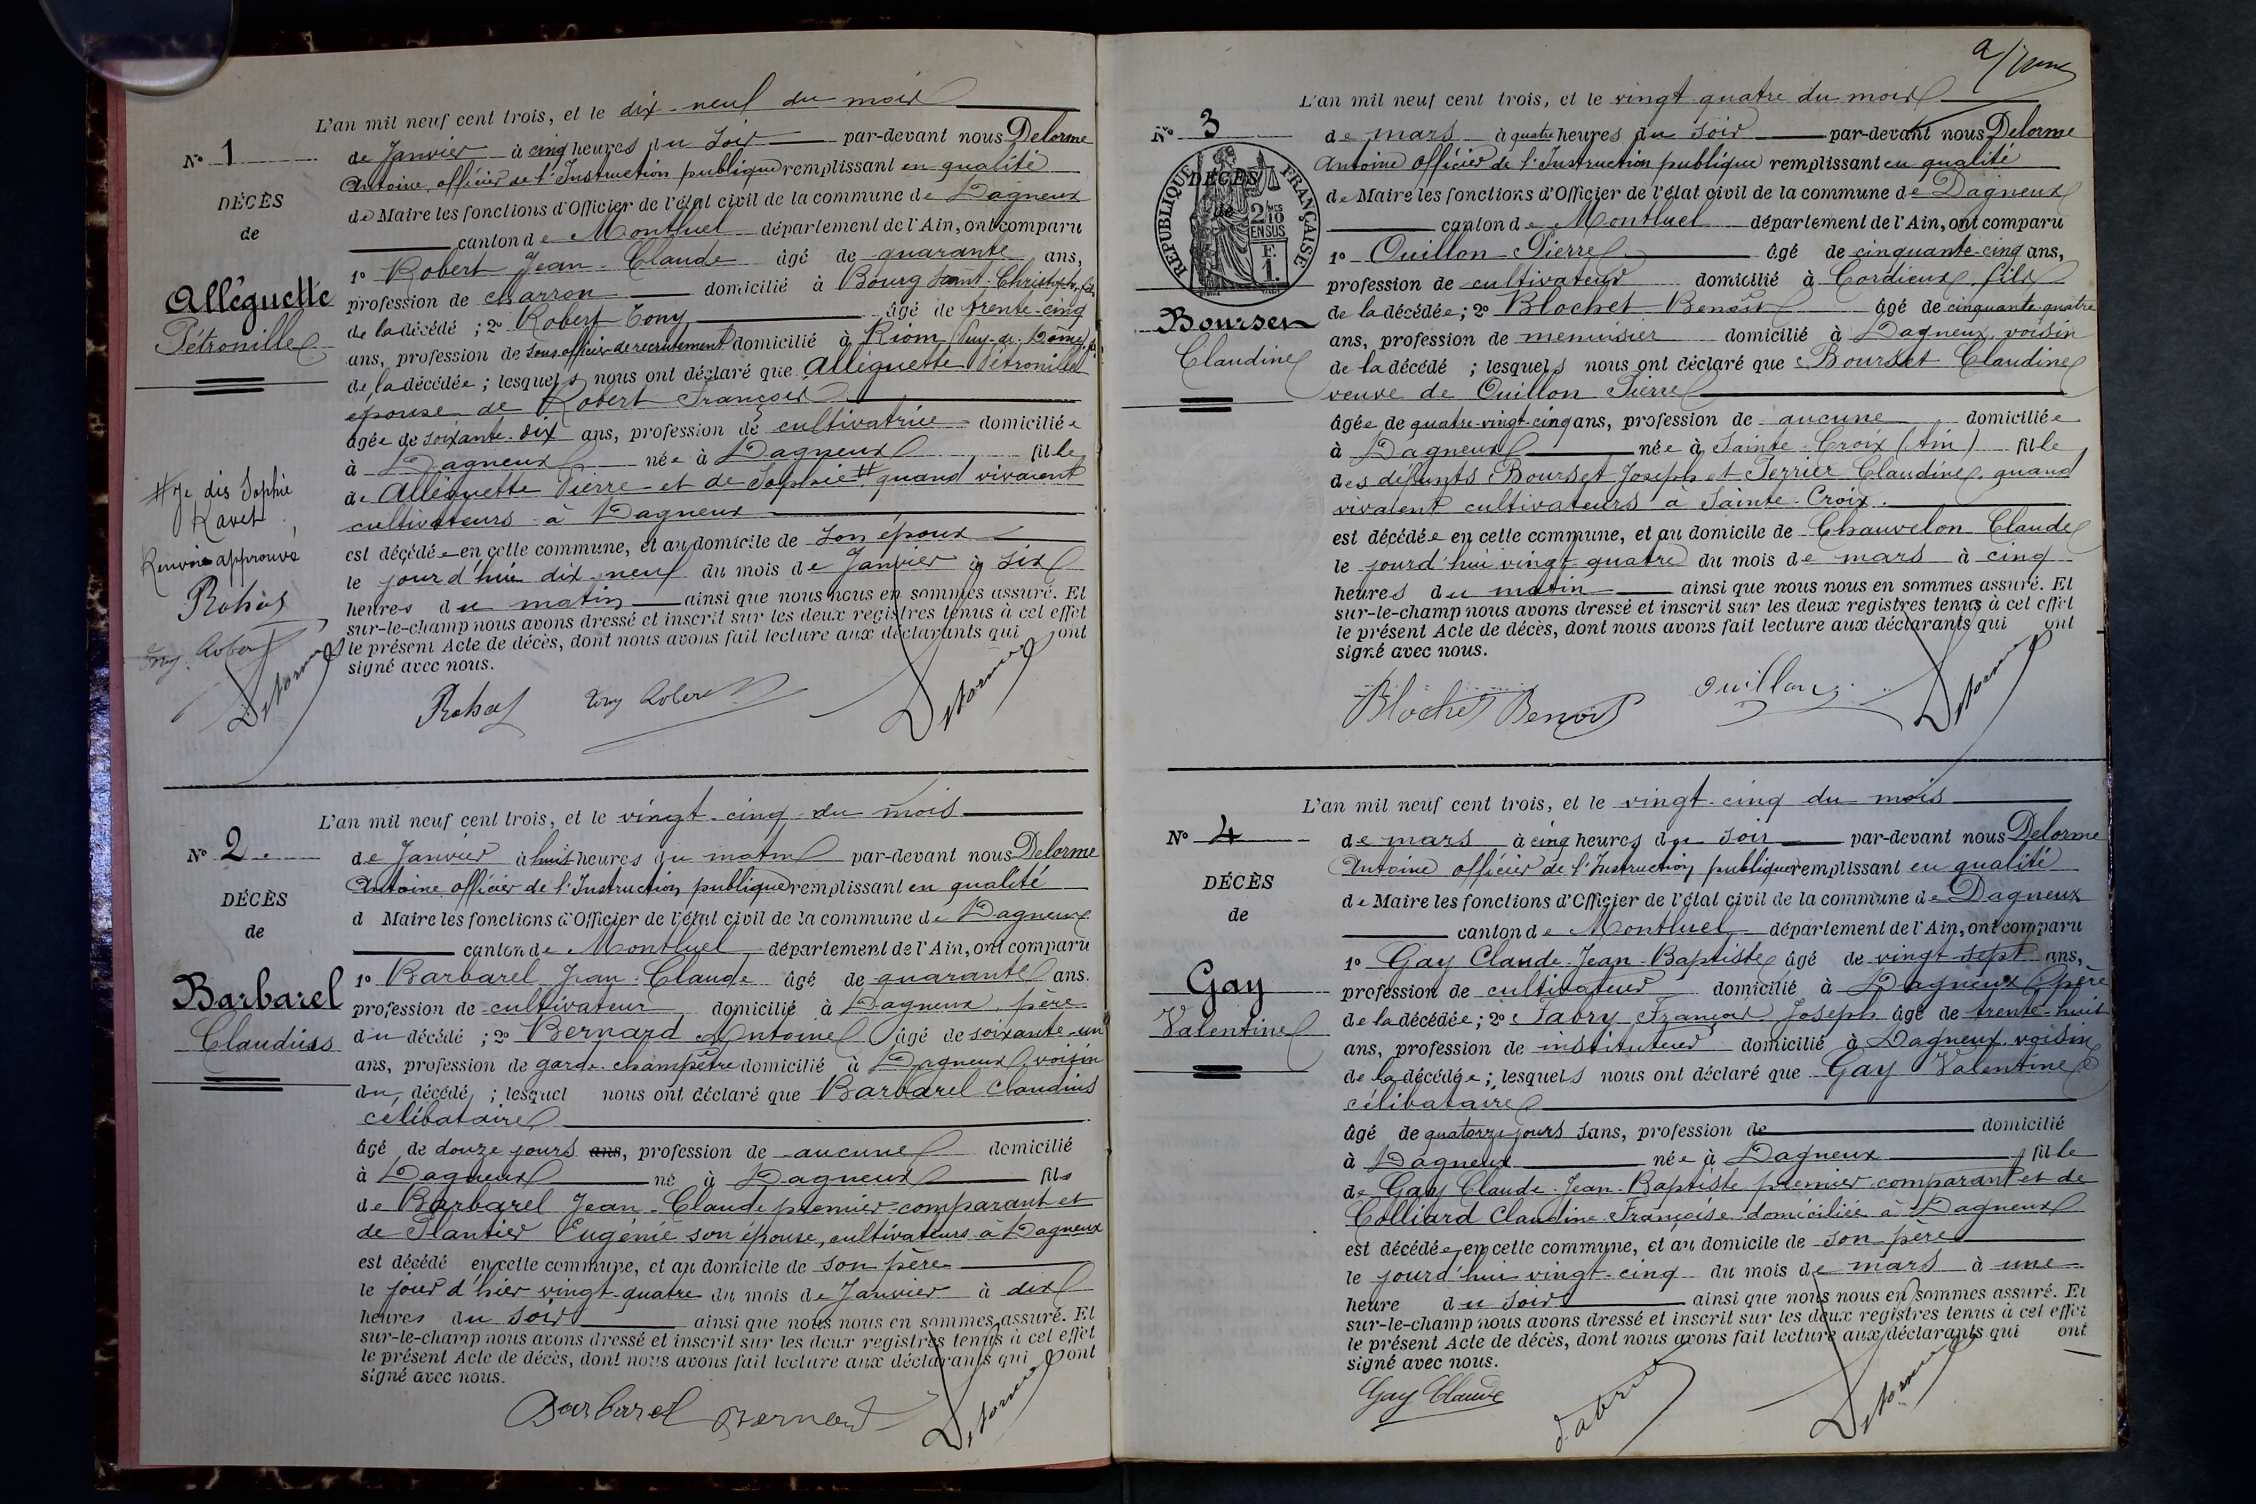 L'an mil neuf cent trois, et le dix-neuf du mois
N° 1
de Janvier à cinq heures du soir par-devant nous Delorme
Antoine, officier de l'Instruction publique remplissant en qualité
DÉCÈS
de Maire les fonctions d'Officier de l'état civil de la commune de Dagneux
de
canton de Montluel département de l'Ain, ont comparu
1° Robert Jean-Claude âgé de quarante ans,
Alléguette
profession de charron domicilié à Bourg Saint-Christophe, fils
Pétronille
de la décédé ; 2° Robert Tony âgé de trente-cinq
ans, profession de sous-officier de recrutement domicilié à Riom Puy-de-Dôme, fils
de la décédée ; lesquels nous ont déclaré que Alléguette Pétronille
épouse de Robert François
âgée de soixante-dix ans, profession de cultivatrice domiciliée
à Dagneux née à Dagneux fille
de Alléguette Pierre et de Sophie # quand vivaient
cultivateurs à Dagneux
# Je dis Sophie
Ravet
Renvoi approuvé
est décédée en cette commune, et au domicile de son époux
le jour d'hui dix-neuf du mois de Janvier à six
heures du matin ainsi que nous nous en sommes assuré. Et
sur-le-champ nous avons dressé et inscrit sur les deux registres tenus à cet effet
le présent Acte de décès, dont nous avons fait lecture aux déclarants qui ont
signé avec nous.
Tony Robert
Delorme
Tony Robert
Delorme
L'an mil neuf cent trois, et le vingt-cinq du mois
N° 2
de Janvier à huit heures du matin par-devant nous Delorme
Antoine officier de l'Instruction publique remplissant en qualité
DÉCÈS
d Maire les fonctions d'Officier de l'état civil de la commune de Dagneux
de
canton de Montluel département de l'Ain, ont comparu
1° Barbarel Jean-Claude âgé de quarante ans.
Barbarel
profession de cultivateur domicilié à Dagneux, père
Claudius
du décédé ; 2° Bernard Antoine âgé de soixante-un
ans, profession de garde-champêtre domicilié à Dagneux, voisin
du décédé ; lesquel nous ont déclaré que Barbarel Claudius
célibataire
âgé de douze jours ans, profession de aucune domicilié
à Dagneux né à Dagneux fils
de Barbarel Jean-Claude premier comparant et
de Plantier Eugénie son épouse, cultivateurs à Dagneux
est décédé en cette commune, et au domicile de son père
le jour d'hier vingt-quatre du mois de Janvier à dix
heures du soir ainsi que nous nous en sommes assuré. Et
sur-le-champ nous avons dressé et inscrit sur les deux registres tenus à cet effet
le présent Acte de décès, dont nous avons fait lecture aux déclarants qui ont
signé avec nous.
Barbarel Bernard Delorme
L'an mil neuf cent trois, et le vingt quatre du mois
N° 3
de mars à quatre heures du soir par-devant nous Delorme
Antoine officier de l'Instruction publique remplissant en qualité
DÉCÈS
de
RÉPUBLIQUE FRANÇAISE
2 MES
10
EN SUS
F.
1.
de Maire les fonctions d'Officier de l'état civil de la commune de Dagneux
canton de Montluel département de l'Ain, ont comparu
1° Ouillon Pierre âgé de cinquante-cinq ans,
profession de cultivateur domicilié à Cordieux, fils
Bourset
de la décédée ; 2° Blochet Benoit âgé de cinquante-quatre
Claudine
ans, profession de menuisier domicilié à Dagneux, voisin
de la décédé ; lesquels nous ont déclaré que Bourset Claudine
veuve de Ouillon Pierre
âgée de quatre-vingt-cinq ans, profession de aucune domiciliée
à Dagneux née à Sainte-Croix (Ain) fille
des défunts Bourset Joseph et Perrier Claudine, quand
vivaient cultivateurs à Sainte-Croix.
est décédée en cette commune, et au domicile de Chauvelon Claude
le jourd'hui vingt-quatre du mois de mars à cinq
heures du matin ainsi que nous nous en sommes assuré. Et
sur-le-champ nous avons dressé et inscrit sur les deux registres tenus à cet effet
le présent Acte de décès, dont nous avons fait lecture aux déclarants qui ont
signé avec nous.
Blochet Benoit Ouillon Delorme
L'an mil neuf cent trois, et le vingt-cinq du mois
N° 4
de mars à cinq heures du soir par-devant nous Delorme
Antoine officier de l'Instruction publique remplissant en qualité
DÉCÈS
de Maire les fonctions d'Officier de l'état civil de la commune de Dagneux
de
canton de Montluel département de l'Ain, ont comparu
1° Gay Claude-Jean-Baptiste âgé de vingt-sept ans,
Gay
profession de cultivateur domicilié à Dagneux père
Valentine
de la décédée ; 2° Fabry François Joseph âgé de trente-huit
ans, profession de instituteur domicilié à Dagneux, voisin
de la décédée ; lesquels nous ont déclaré que Gay Valentine
célibataire
âgé de quatorze jours sans, profession de domicilié
à Dagneux née à Dagneux fille
de Gay Claude-Jean-Baptiste premier comparant et de
Colliard Claudine Françoise domiciliée à Dagneux
est décédée en cette commune, et au domicile de son père
le jourd'hui vingt-cinq du mois de mars à une
heure du soir ainsi que nous nous en sommes assuré. Et
sur-le-champ nous avons dressé et inscrit sur les deux registres tenus à cet effet
le présent Acte de décès, dont nous avons fait lecture aux déclarants qui ont
signé avec nous.
Gay Claude
Delorme